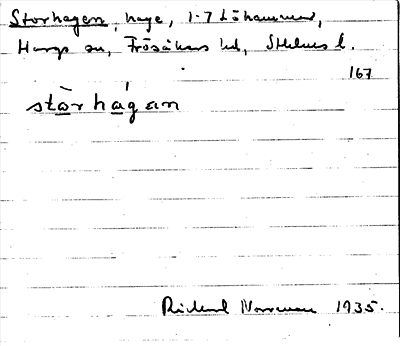 Storhagen, hage, 1-7 Löhammar,
Hargs sn, Frösåkers hd, Sthlms l.
167
stòrhágan
Rickard Norrman 1935.